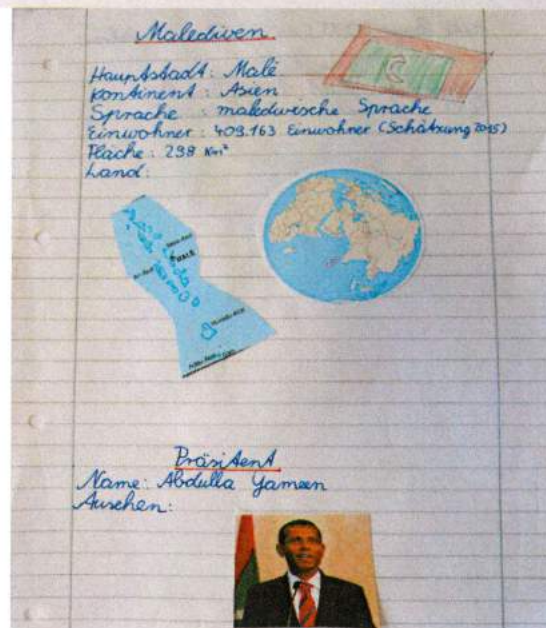 Malediven
Hauptstadt: Malé
Kontinent: Asien
Sprache: maledivesche Sprache
Einwohner: 409.163 Einwohner (Schätzung 2015)
Fläche: 298 km²
Land:
MALE
Präsident
Name: Abdulla Yameen
Aussehen: